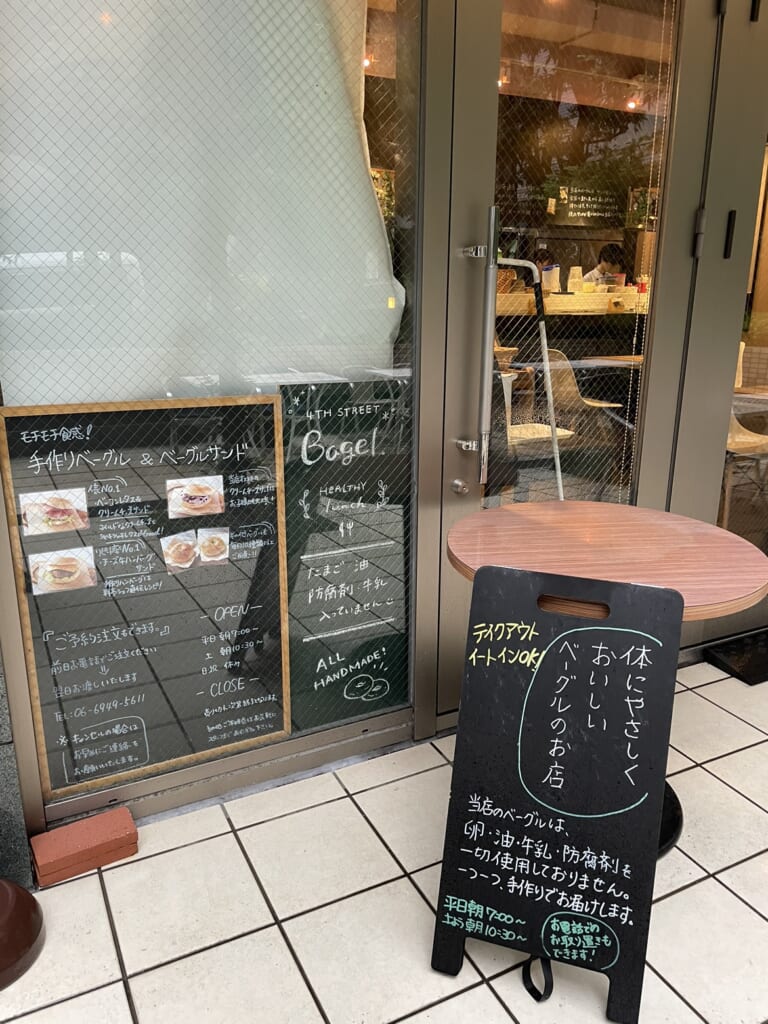 モチモチ食感!
手作りベーグル & ベーグルサンド
人気No.1
ベーコンレタス&
クリームチーズサンド
クリームチーズサンド
リピート率No.1
チーズハンバーグ
サンド
『ご予約注文もできます。』
前日お電話でご注文ください
↓
翌日お渡しいたします
TEL:06-6949-5611
※キャンセルの場合は
お早めにご連絡を
お願いいたします。
-OPEN-
平日朝7:00~
土 朝10:30~
日祝 休み
-CLOSE-
4TH STREET
Bagel.
HEALTHY
lunch
たまご・油
防腐剤・牛乳
入っていません
ALL
HANDMADE!
テイクアウト
イートインOK!
体にやさしく
おいしい
ベーグルのお店
当店のベーグルは、
「卵・油・牛乳・防腐剤」を
一切使用しておりません。
一つ一つ、手作りでお届けします。
平日朝7:00~
土よう朝10:30~
お電話での
お取り置きも
できます!